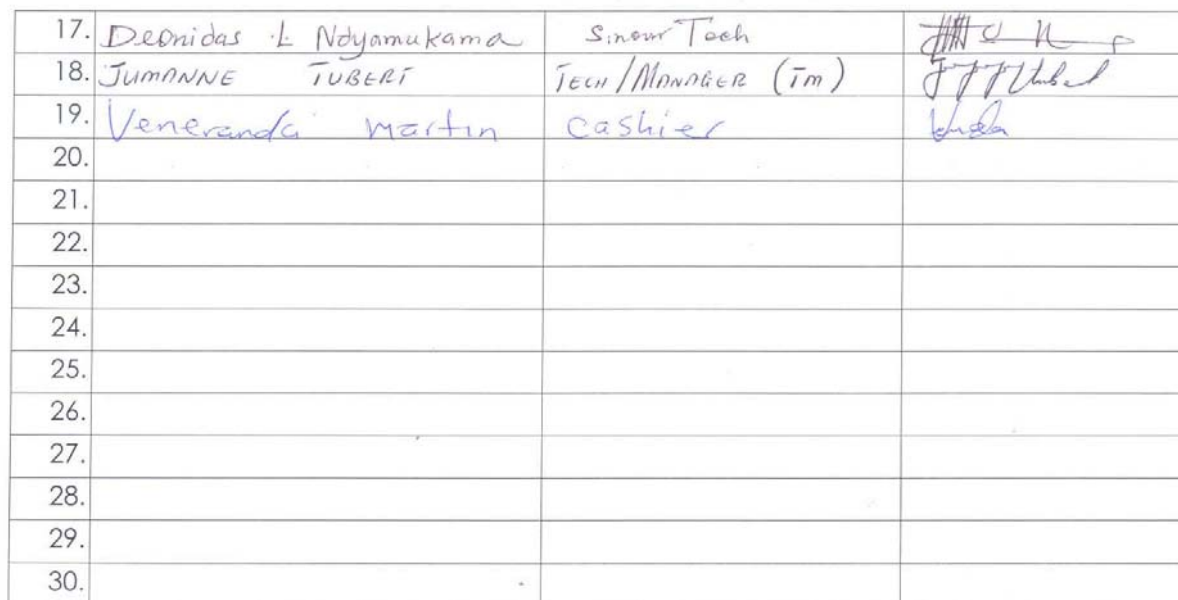 17. Deonidas L Ndyamukama Sinour Tech
18. JUMANNE TUBERT TECH/MANAGER (TM)
19. Veneranda Martin cashier
20.
21.
22.
23.
24.
25.
26.
27.
28.
29.
30.